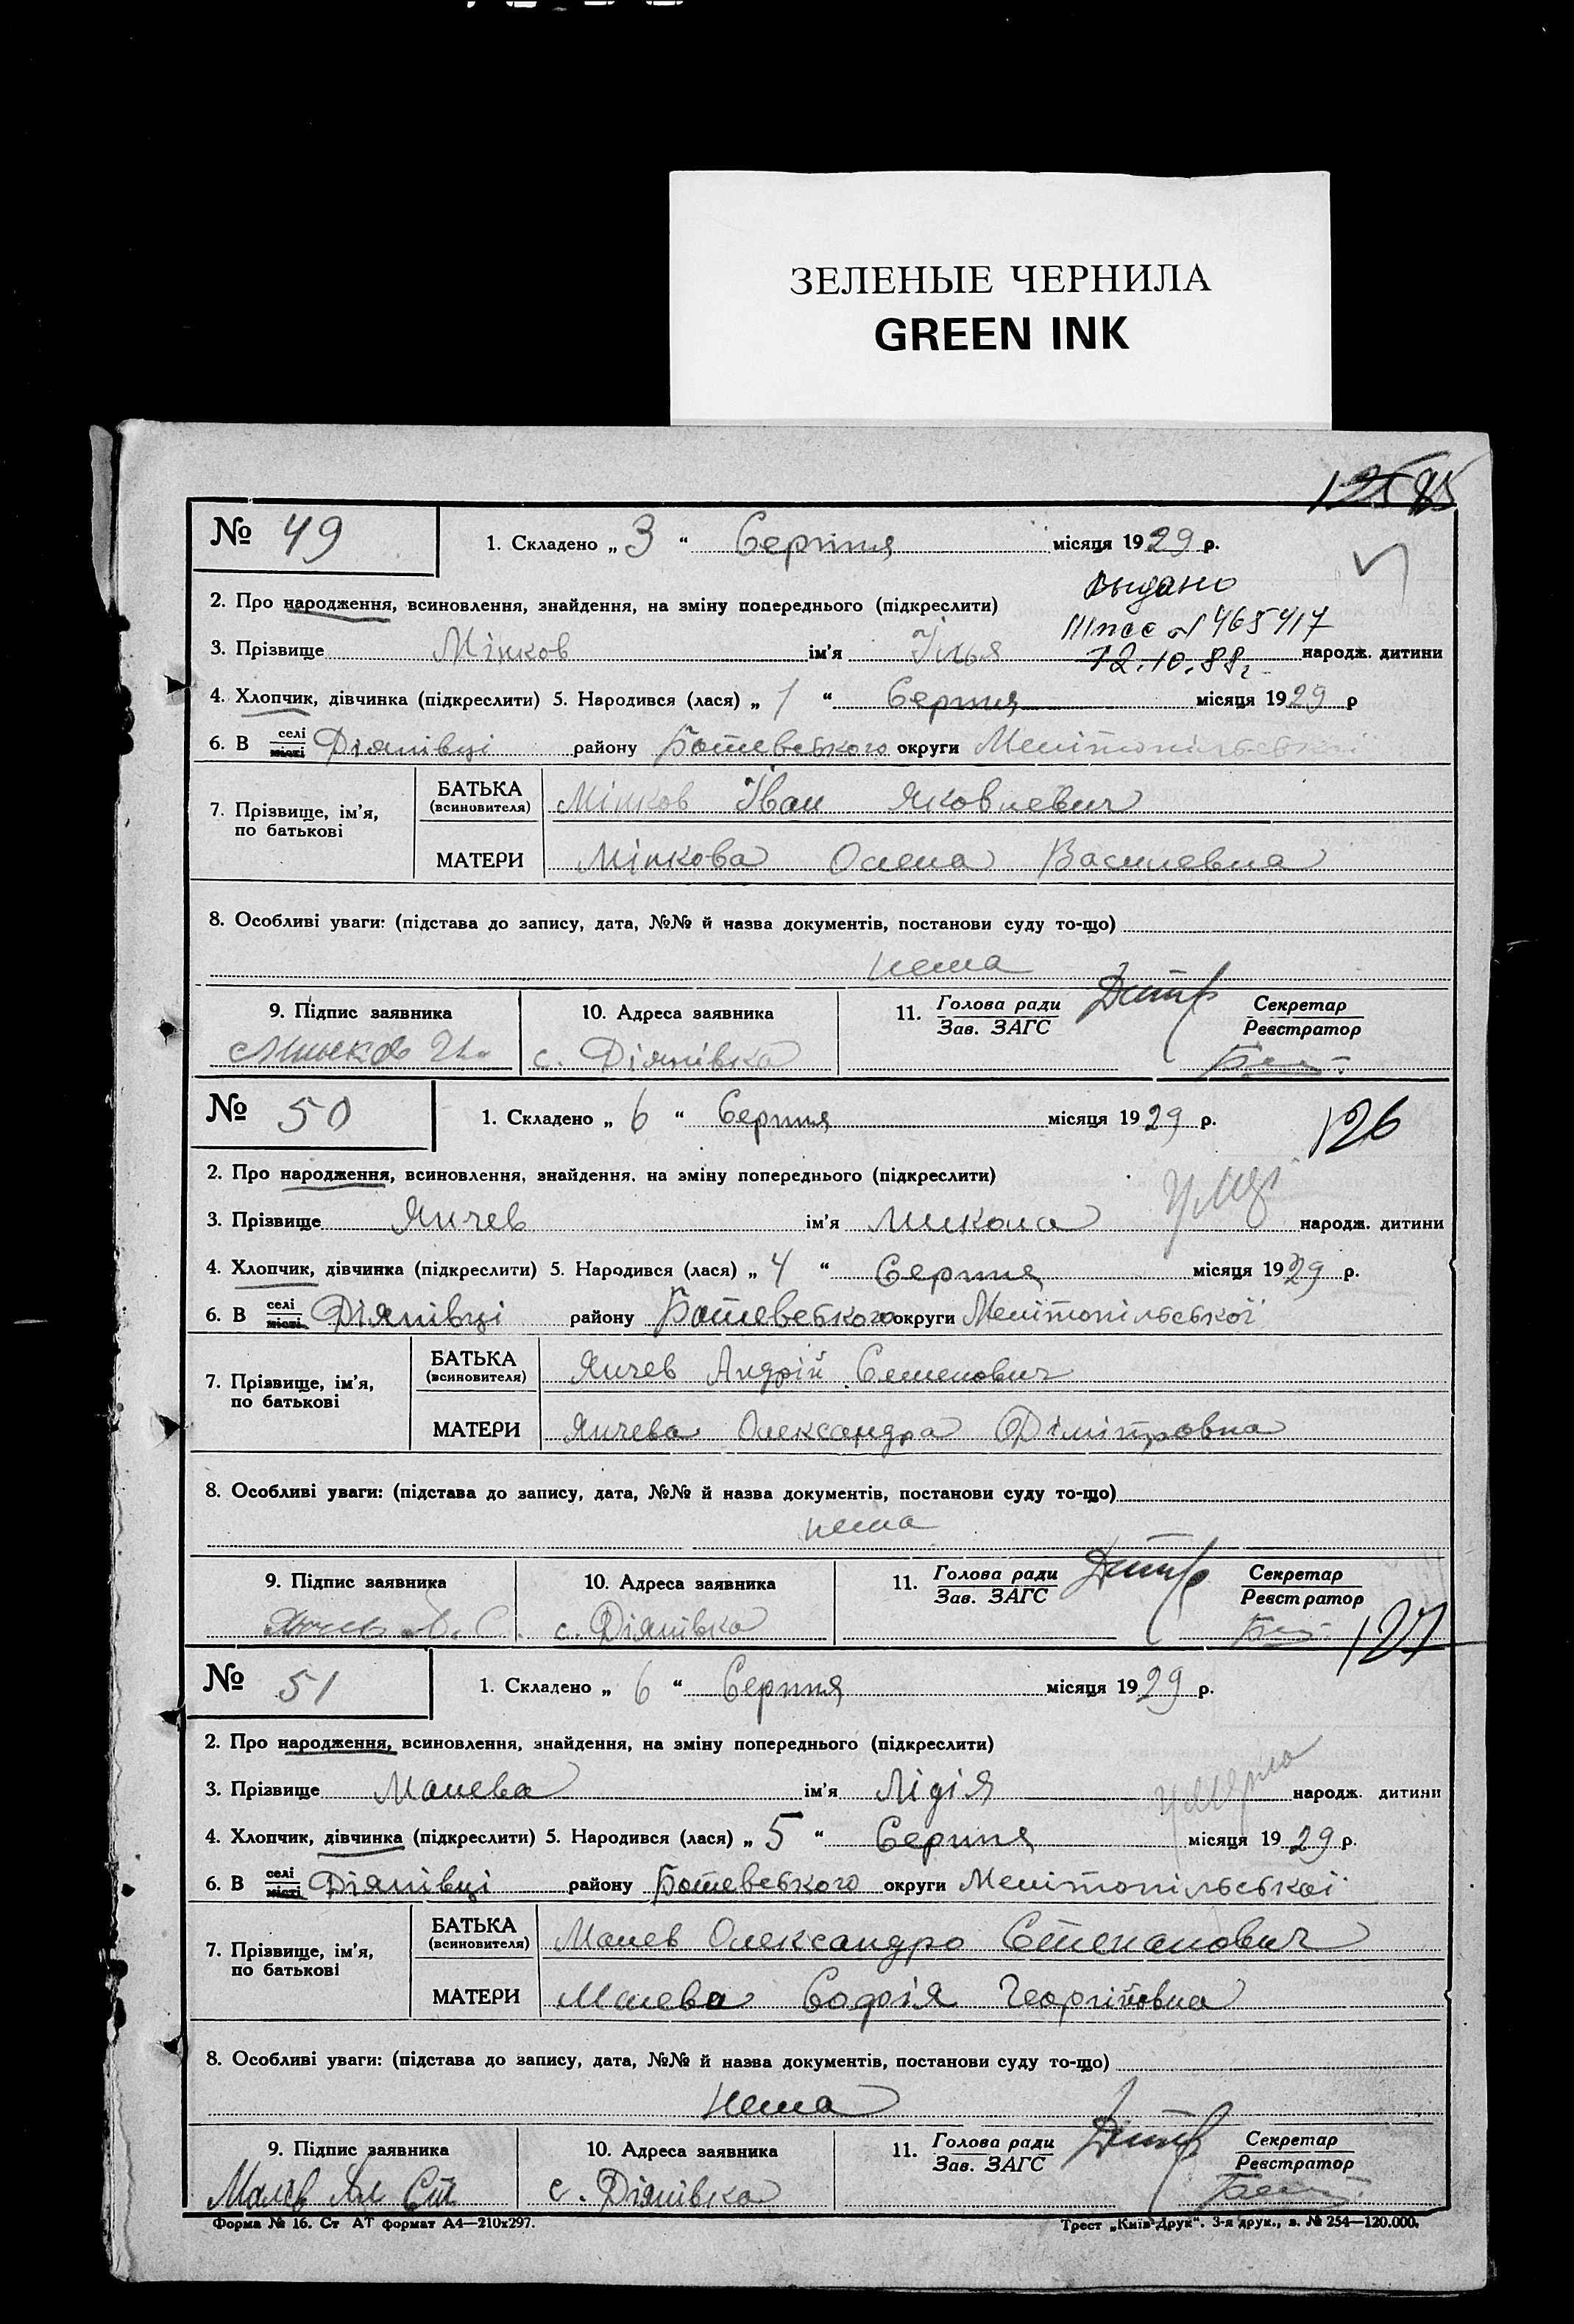 ЗЕЛЕНЫЕ ЧЕРНИЛА
GREEN INK
№ 49 1. Складено „ 3 “ Серпня місяця 1929 р.
2. Про народження, всиновлення, знайдення, на зміну попереднього (підкреслити) выдано
III псс № 465417
3. Прізвище Мінков ім'я Ілья народж. дитини
12.10.88г.
4. Хлопчик, дівчинка (підкреслити) 5. Народився (лася) „ 1 “ Серпня місяця 1929 р
6. В селі місті Діянівці району Ботевського округи Мелітопільської
7. Прізвище, ім'я, по батькові БАТЬКА (всиновителя) Мінков Іван Яковлевич
МАТЕРИ Мінкова Олена Василевна
8. Особливі уваги: (підстава до запису, дата, №№ й назва документів, постанови суду то-що)
нема
9. Підпис заявника 10. Адреса заявника 11. Голова ради Зав. ЗАГС Секретар Реєстратор
с. Діянівка
№ 50 1. Складено „ 6 “ Серпня місяця 1929 р. 126
2. Про народження, всиновлення, знайдення, на зміну попереднього (підкреслити)
3. Прізвище Янчев ім'я Микола народж. дитини
4. Хлопчик, дівчинка (підкреслити) 5. Народився (лася) „ 4 “ Серпня місяця 1929 р.
6. В селі місті Діянівці району Ботевського округи Мелітопільської
7. Прізвище, ім'я, по батькові БАТЬКА (всиновителя) Янчев Андрій Семенович
МАТЕРИ Янчева Олександра Дімітровна
8. Особливі уваги: (підстава до запису, дата, №№ й назва документів, постанови суду то-що)
нема
9. Підпис заявника 10. Адреса заявника 11. Голова ради Зав. ЗАГС Секретар Реєстратор
с. Діянівка 127
№ 51 1. Складено „ 6 “ Серпня місяця 1929 р.
2. Про народження, всиновлення, знайдення, на зміну попереднього (підкреслити)
умерла
3. Прізвище Манева ім'я Лідія народж. дитини
4. Хлопчик, дівчинка (підкреслити) 5. Народився (лася) „ 5 “ Серпня місяця 1929 р.
6. В селі місті Діянівці району Ботевського округи Мелітопільської
7. Прізвище, ім'я, по батькові БАТЬКА (всиновителя) Манев Олександро Степанович
МАТЕРИ Манева Софія Георгійовна
8. Особливі уваги: (підстава до запису, дата, №№ й назва документів, постанови суду то-що)
нема
9. Підпис заявника 10. Адреса заявника 11. Голова ради Зав. ЗАГС Секретар Реєстратор
с. Діянівка
Форма № 16. Ст АТ формат А4—210х297. Трест „Київ-Друк“. 3-я друк., з. № 254—120.000.